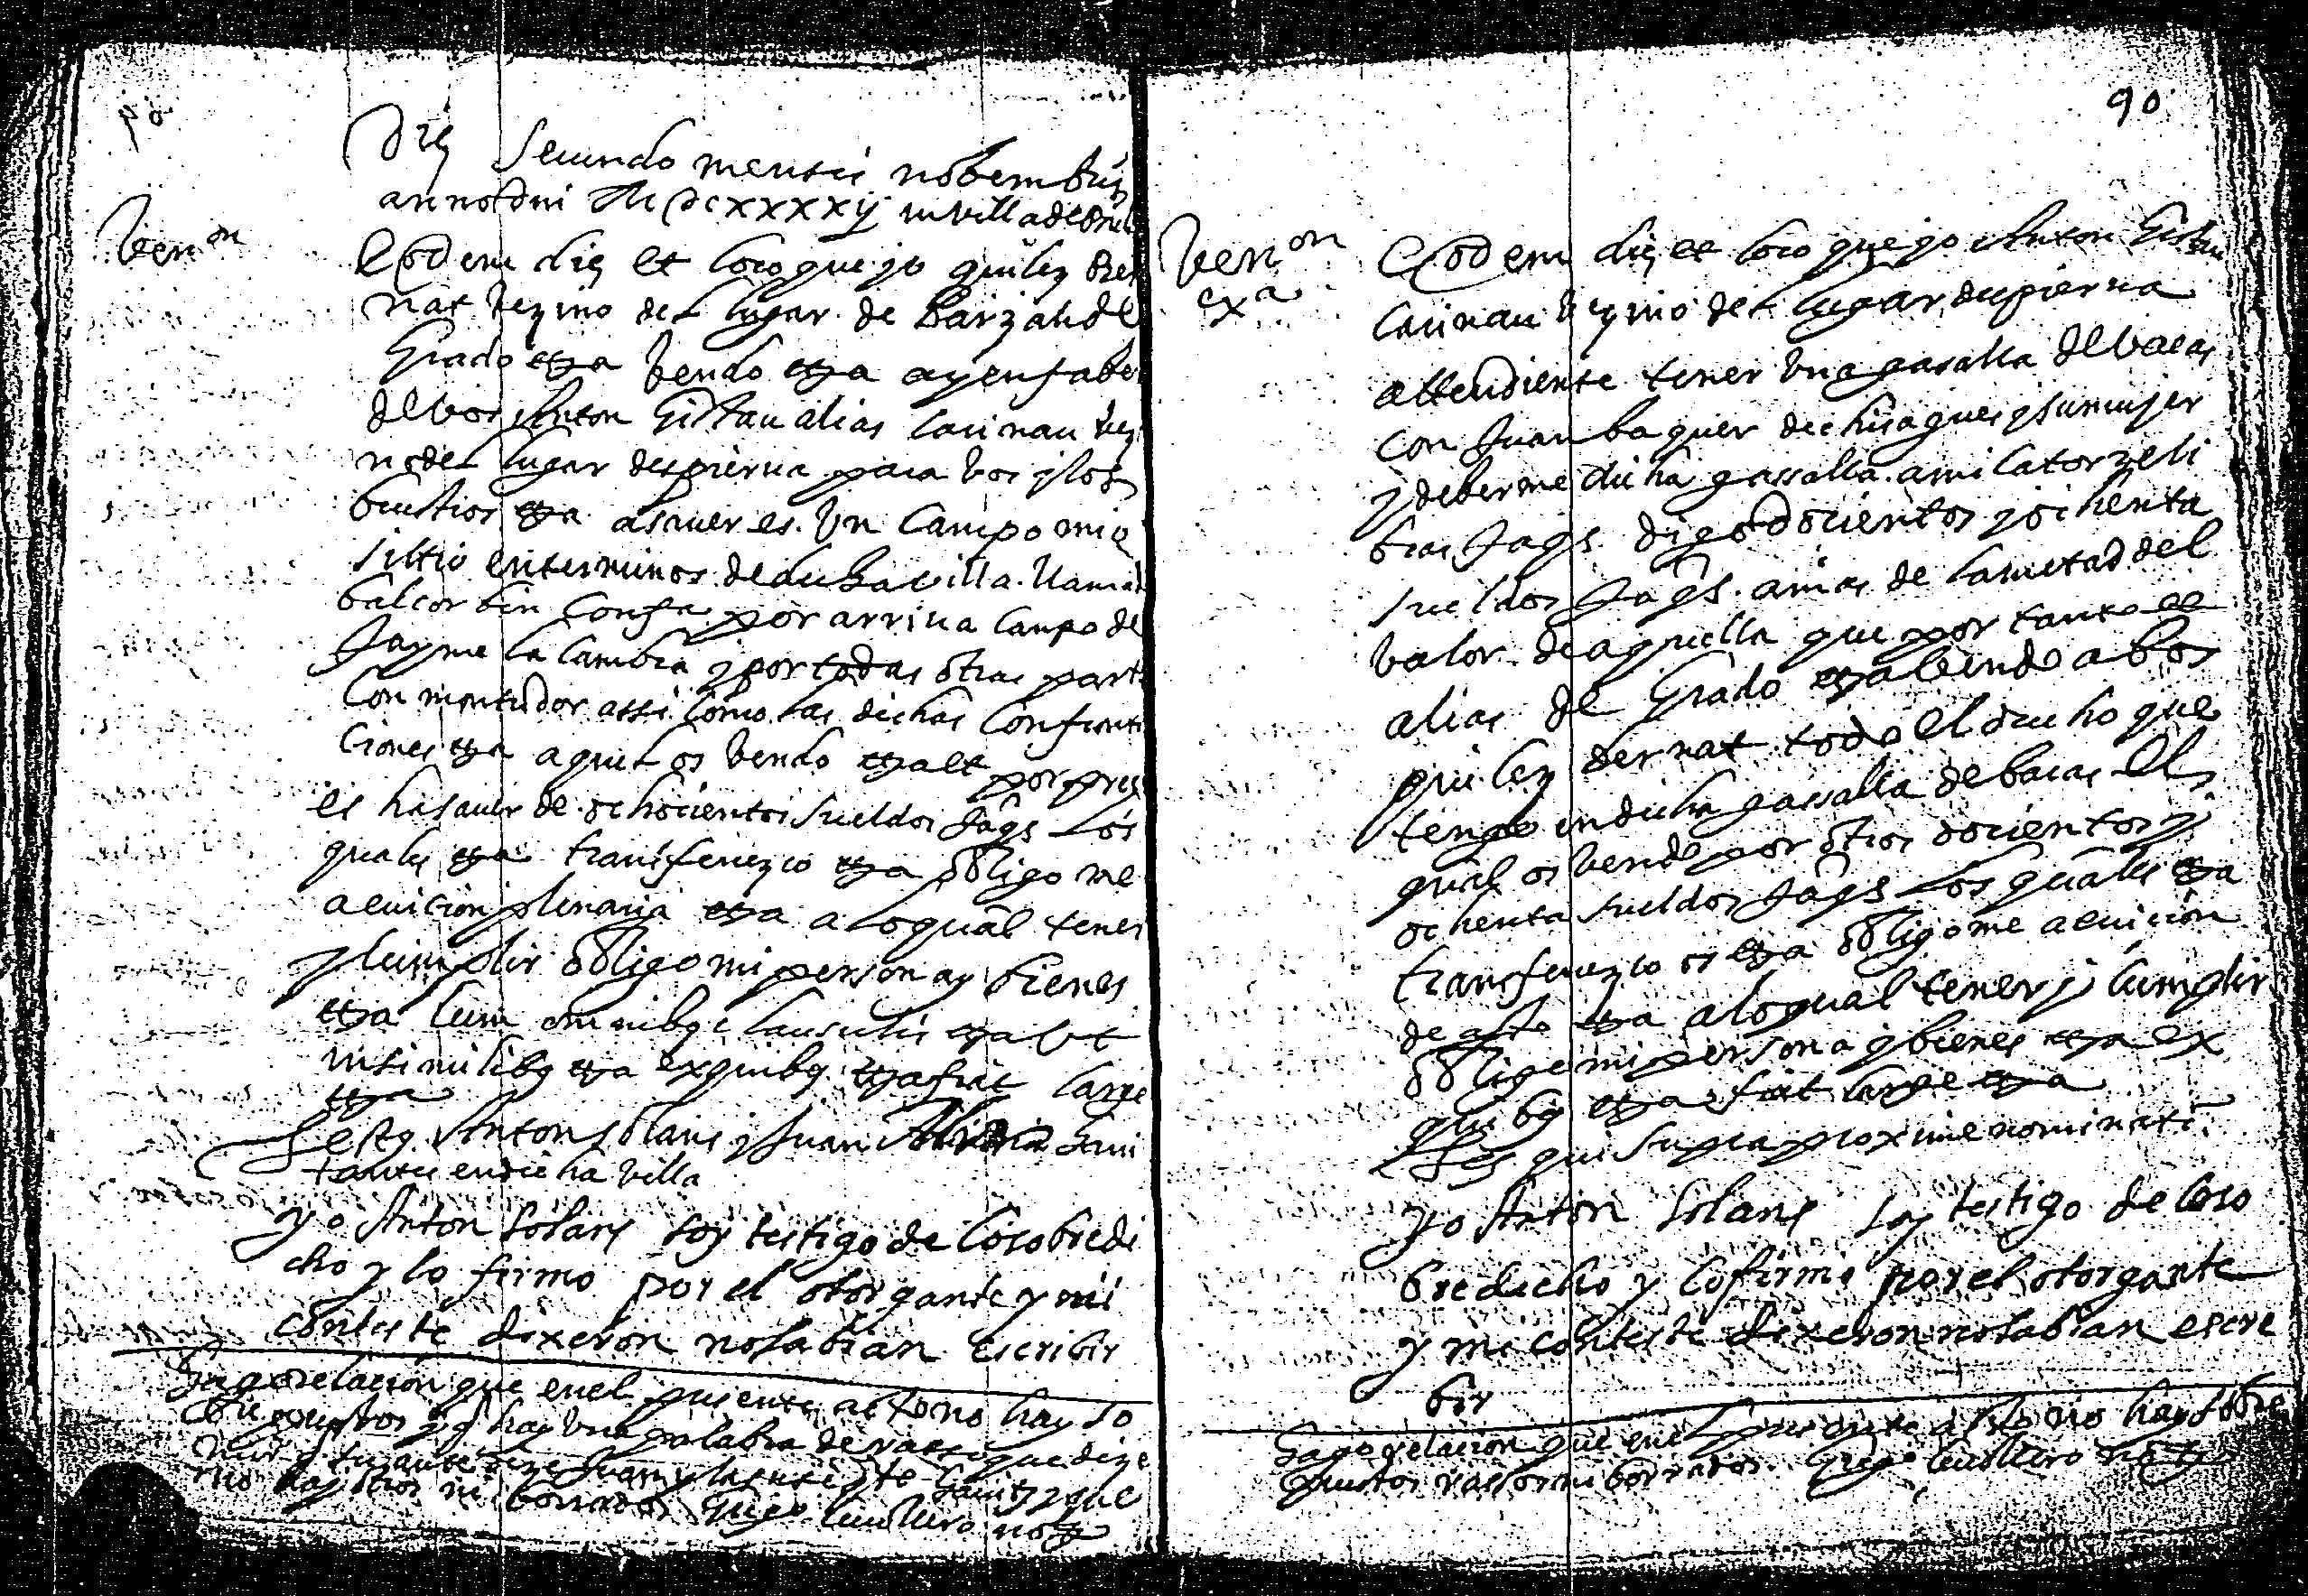 Die secundo mensis nobembris
anno dni M DC xxxxij in villa de
Ven.on
Eodem die et loco que yo quilez Ber
nat vezino del lugar de Barzan de
Grado etza bendo etza agensabe
de vos Anton Gistau alias Laurnau vezi
no del lugar despierna para vos y los
bustros etza asauer es. Vn campo mio
sittio en terminos de dicha villa. llamad
balcorbin confta por arriua campo de
Jayme la lambra y por todas otras part
con montudor assi como las dichas confronta
ciones etza aquel os bendo etza et por preç
es hasauer de ochocientos sueldos Jags los
quales etza transfierezco etza obligo me
a euicion plenaria etza a lo qual tener
y cumplir obligo mi persona y bienes
etza cum omnibq clausulis etza vt
in similibq etza ex quibq etza fiat large
etza
Testq. Anton Solans y Juan habi
tantes en dicha villa
yo Anton Solans soy testigo de lo sobredi
cho y lo firmo por el otorgante y mi
conteste dixeron no sabian escribir
Hago relacion que en el presente acto no hay so
brepuestos y q hay vna palabra de rasso que dize
dize Juan y la siguiente habit y que
no hay otros ni borrados. notº
90
Ven.on
exa
Eodem die et loco que yo Anton Gistau
Laurnau vezino del lugar despierna
attendiente tener vna gasalla de vacas
con Juan baquer de chisagues y su mujer
y deberme dicha gassalla a mi catorze li
bras Jags. digo docientos y ochenta
sueldos Jags. a mas de la metad del
valor de aquella que por tanto et
alias de Grado etza bendo a bos
quilez bernat todo el drecho que
tengo en dicha gassalla de bacas el
qual os bendo por otros docientos y
ochenta sueldos Jags los quales etza
transfierezco os etza obligome a euicion
de acto etza a lo qual tener y cumplir
obligo mi persona y bienes etza ex
quibq etza fiat large etza
Tes qui supra proxime nominati
yo Anton Solans soy testigo de loso
bredicho y lo firmo por el otorgante
y mi conteste dixeron no sabian escre
bir
Hago relacion que en el presente acto no hay sobre
puestos rassos ni borrados. notº